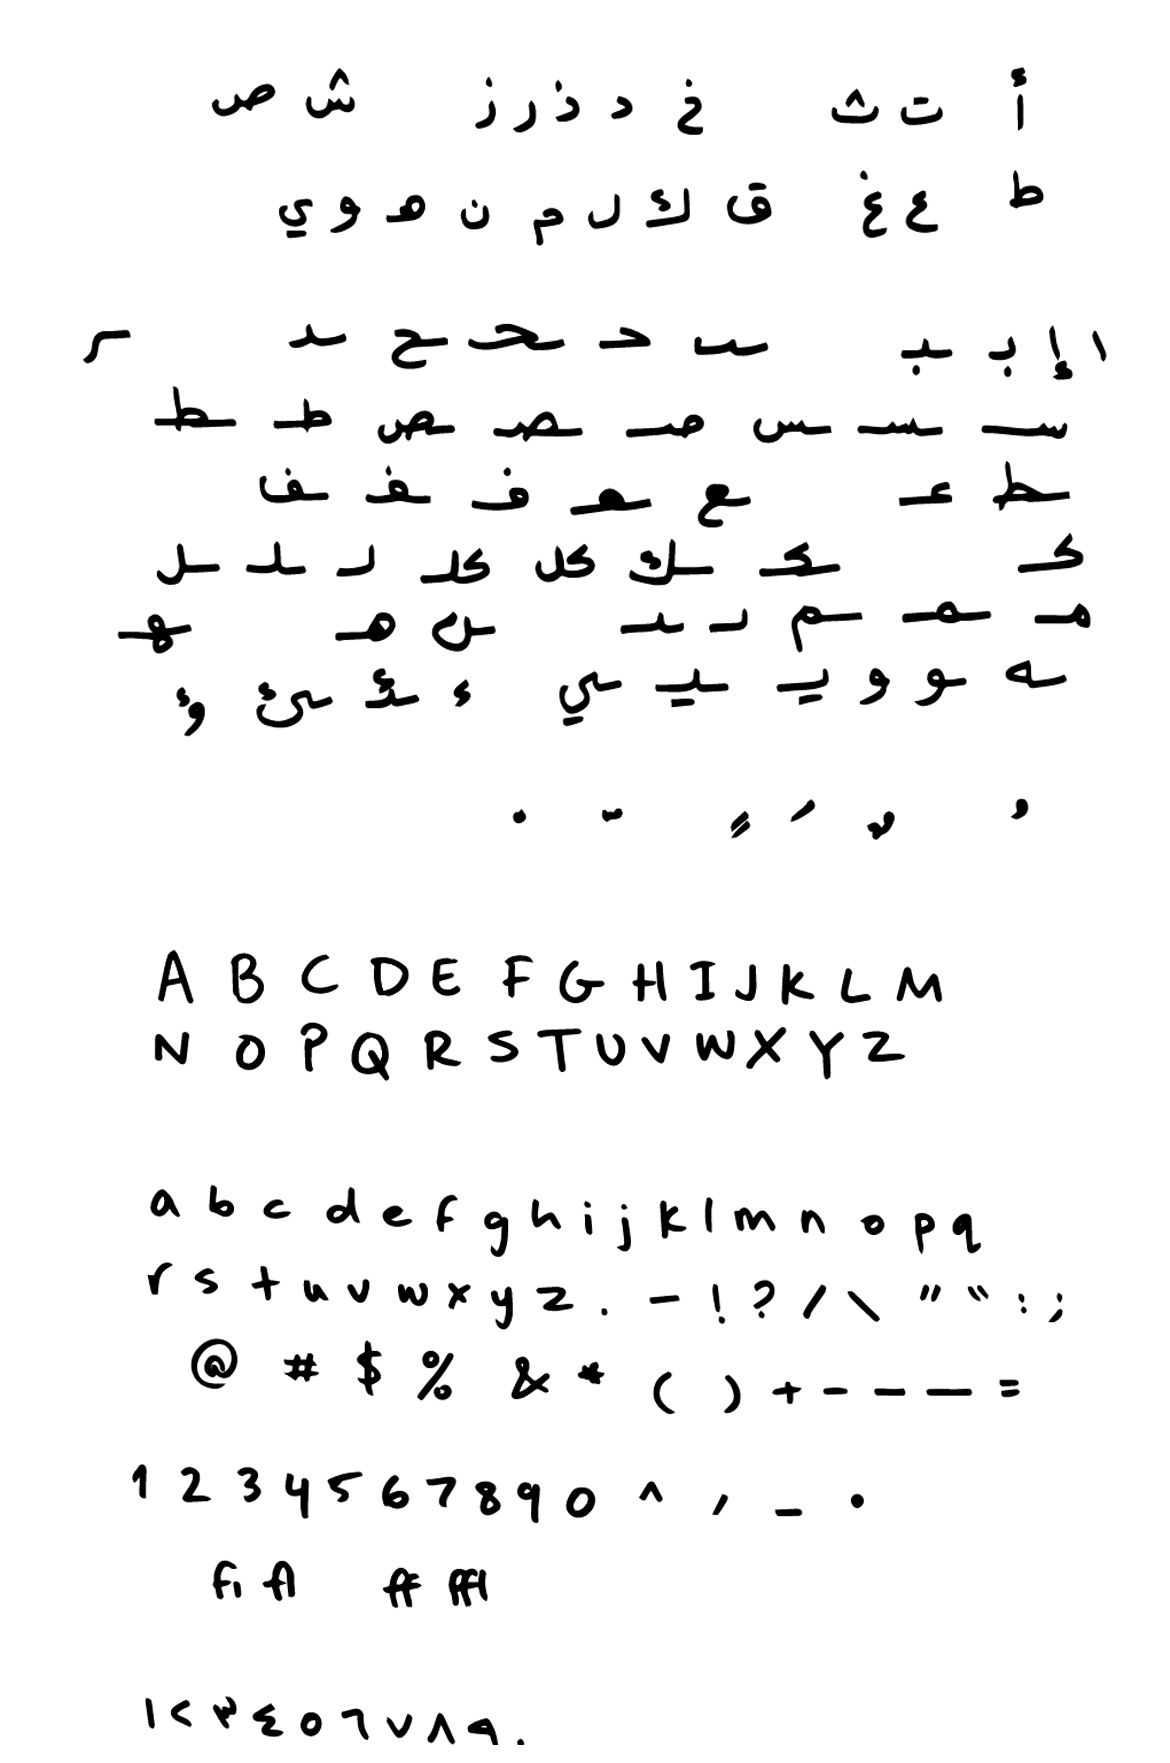 أ ت ث خ د ذ ر ز ش ص
ط ع غ ق ك ل م ن ه و ي
ا إ بـ ـبـ ـسـ حـ ـحـ ـح ـد ـر
سـ ـسـ ـس صـ ـصـ ـص طـ ـطـ
ـط عـ ـع ـعـ فـ ـفـ ـف
كـ ـكـ ـك كل كلـ لـ ـلـ ـل
مـ ـمـ ـم نـ ـنـ ـن هـ ـهـ
ـه و ـو يـ ـيـ ـي ء ـئـ ـئ ؤ
A B C D E F G H I J K L M
N O P Q R S T U V W X Y Z
a b c d e f g h i j k l m n o p q
r s t u v w x y z . - ! ? / \ " " : ;
@ # $ % & * ( ) + - – — =
1 2 3 4 5 6 7 8 9 0 ^ , _ •
fi fl ff ffl
١ ٢ ٣ ٤ ٥ ٦ ٧ ٨ ٩ ٠